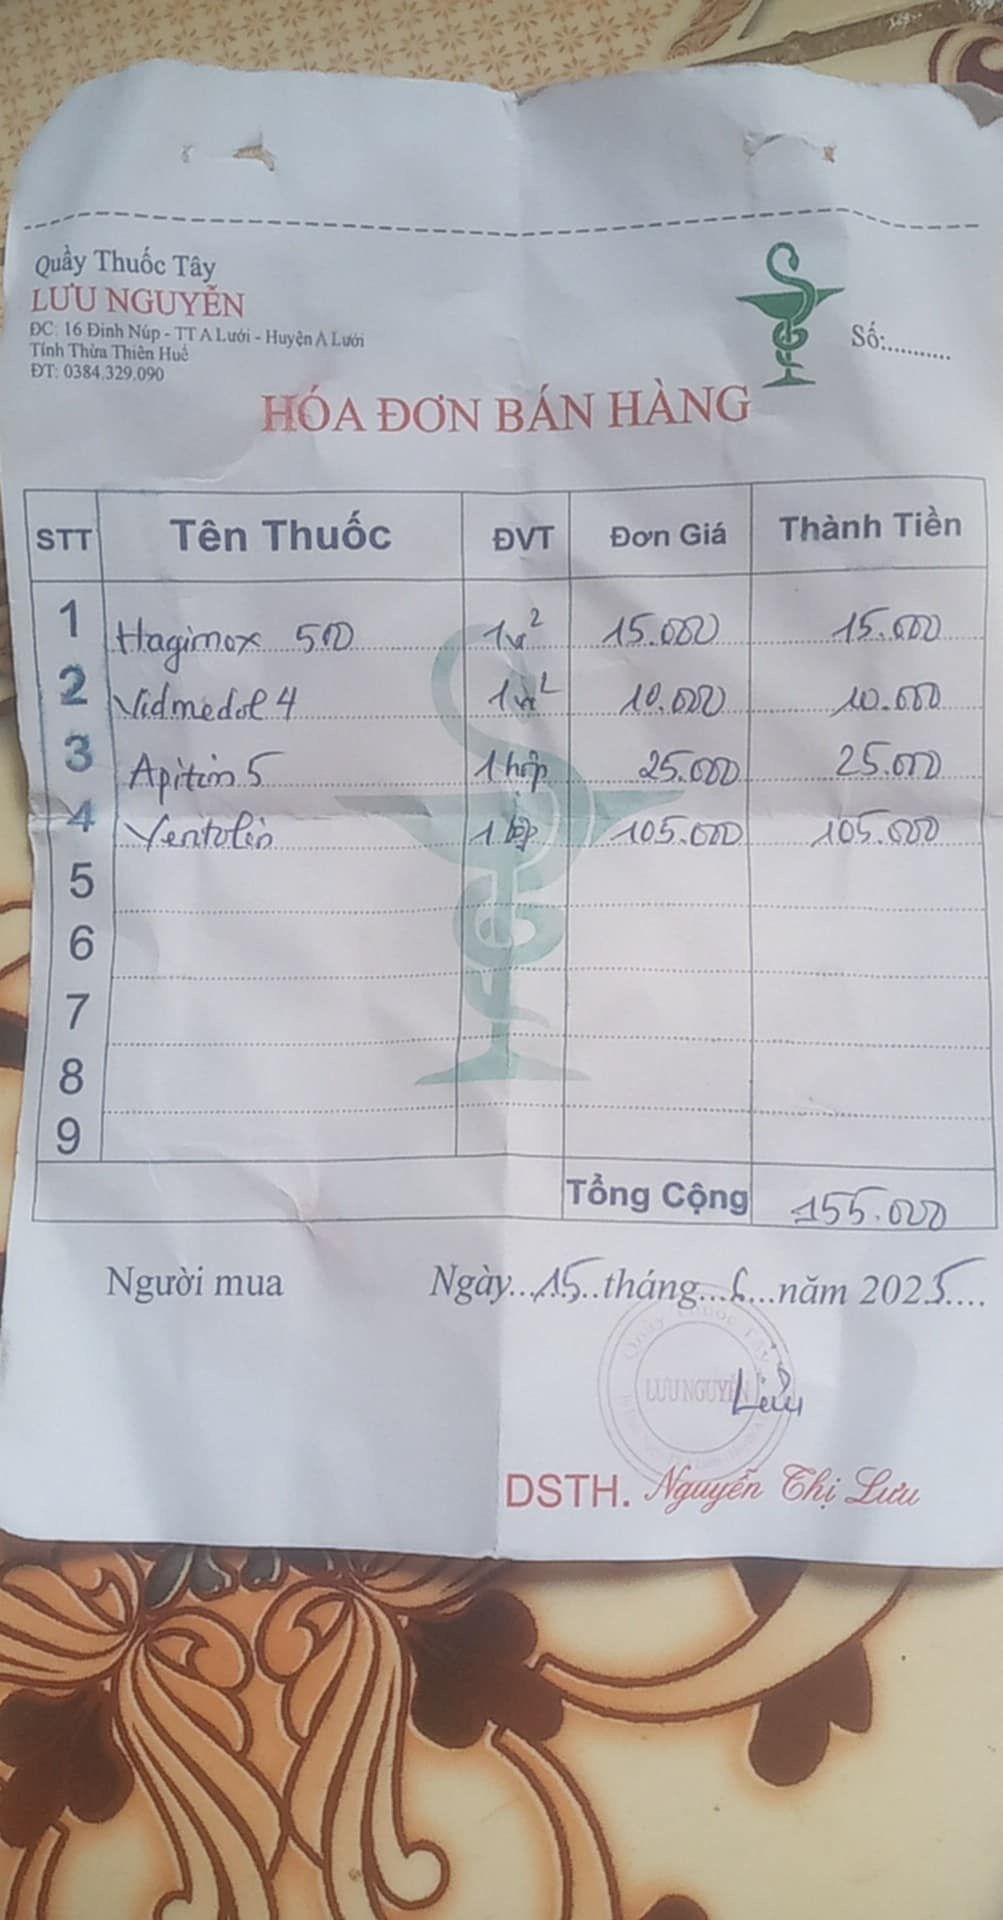 Quầy Thuốc Tây
LƯU NGUYỄN
ĐC: 16 Đinh Núp - TT A Lưới - Huyện A Lưới
Tỉnh Thừa Thiên Huế
ĐT: 0384.329.090
Số:..........
HÓA ĐƠN BÁN HÀNG
STT Tên Thuốc ĐVT Đơn Giá Thành Tiền
1 Hagimox 500 1vỉ 15.000 15.000
2 Vidmedol 4 1vỉ 10.000 10.000
3 Apitim 5 1 hộp 25.000 25.000
4 Ventolin 1 hộp 105.000 105.000
5
6
7
8
9
Tổng Cộng 155.000
Người mua
Ngày...15..tháng...6...năm 2025....
Quầy Thuốc Tây
LƯU NGUYỄN
Lưu
DSTH. Nguyễn Thị Lưu